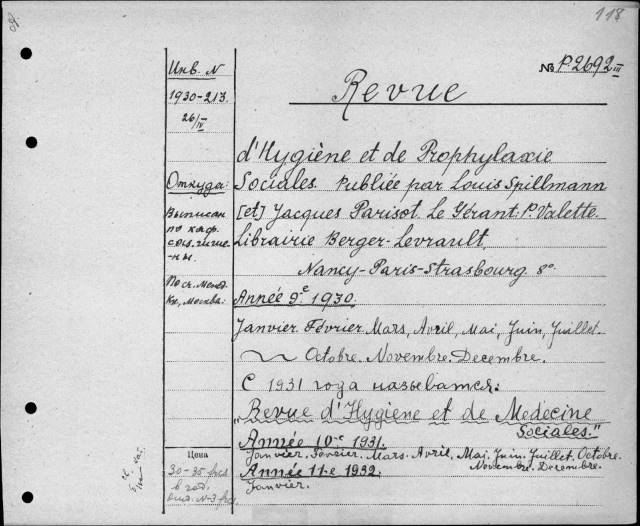 118
Инв. N
№ P.2692 III
1930-213.
26/IV
Revue
d'Hygiène et de Prophylaxie
Откуда:
Sociales. Publiée par Louis Spillmann
Выписан
[et] Jacques Parisot. Le Gérant: P. Valette.
по каф.
Librairie Berger-Levrault,
соц. гигие-
ны.
Nancy-Paris-Strasbourg. 8°.
Année 9e. 1930.
Кн, Москва.
Janvier. Février. Mars, Avril, Mai, Juin, Juillet.
Octobre. Novembre. Decembre.
С 1931 года называется:
"Revue d'Hygiene et de Medecine
Sociales."
Année 10-e 1931.
Цена
Janvier. Fevrier. Mars. Avril, Mai. Juin. Juillet. Octobre.
Novembre. Decembre.
30-35 frcs
Année 11-e 1932.
в год.
Janvier.